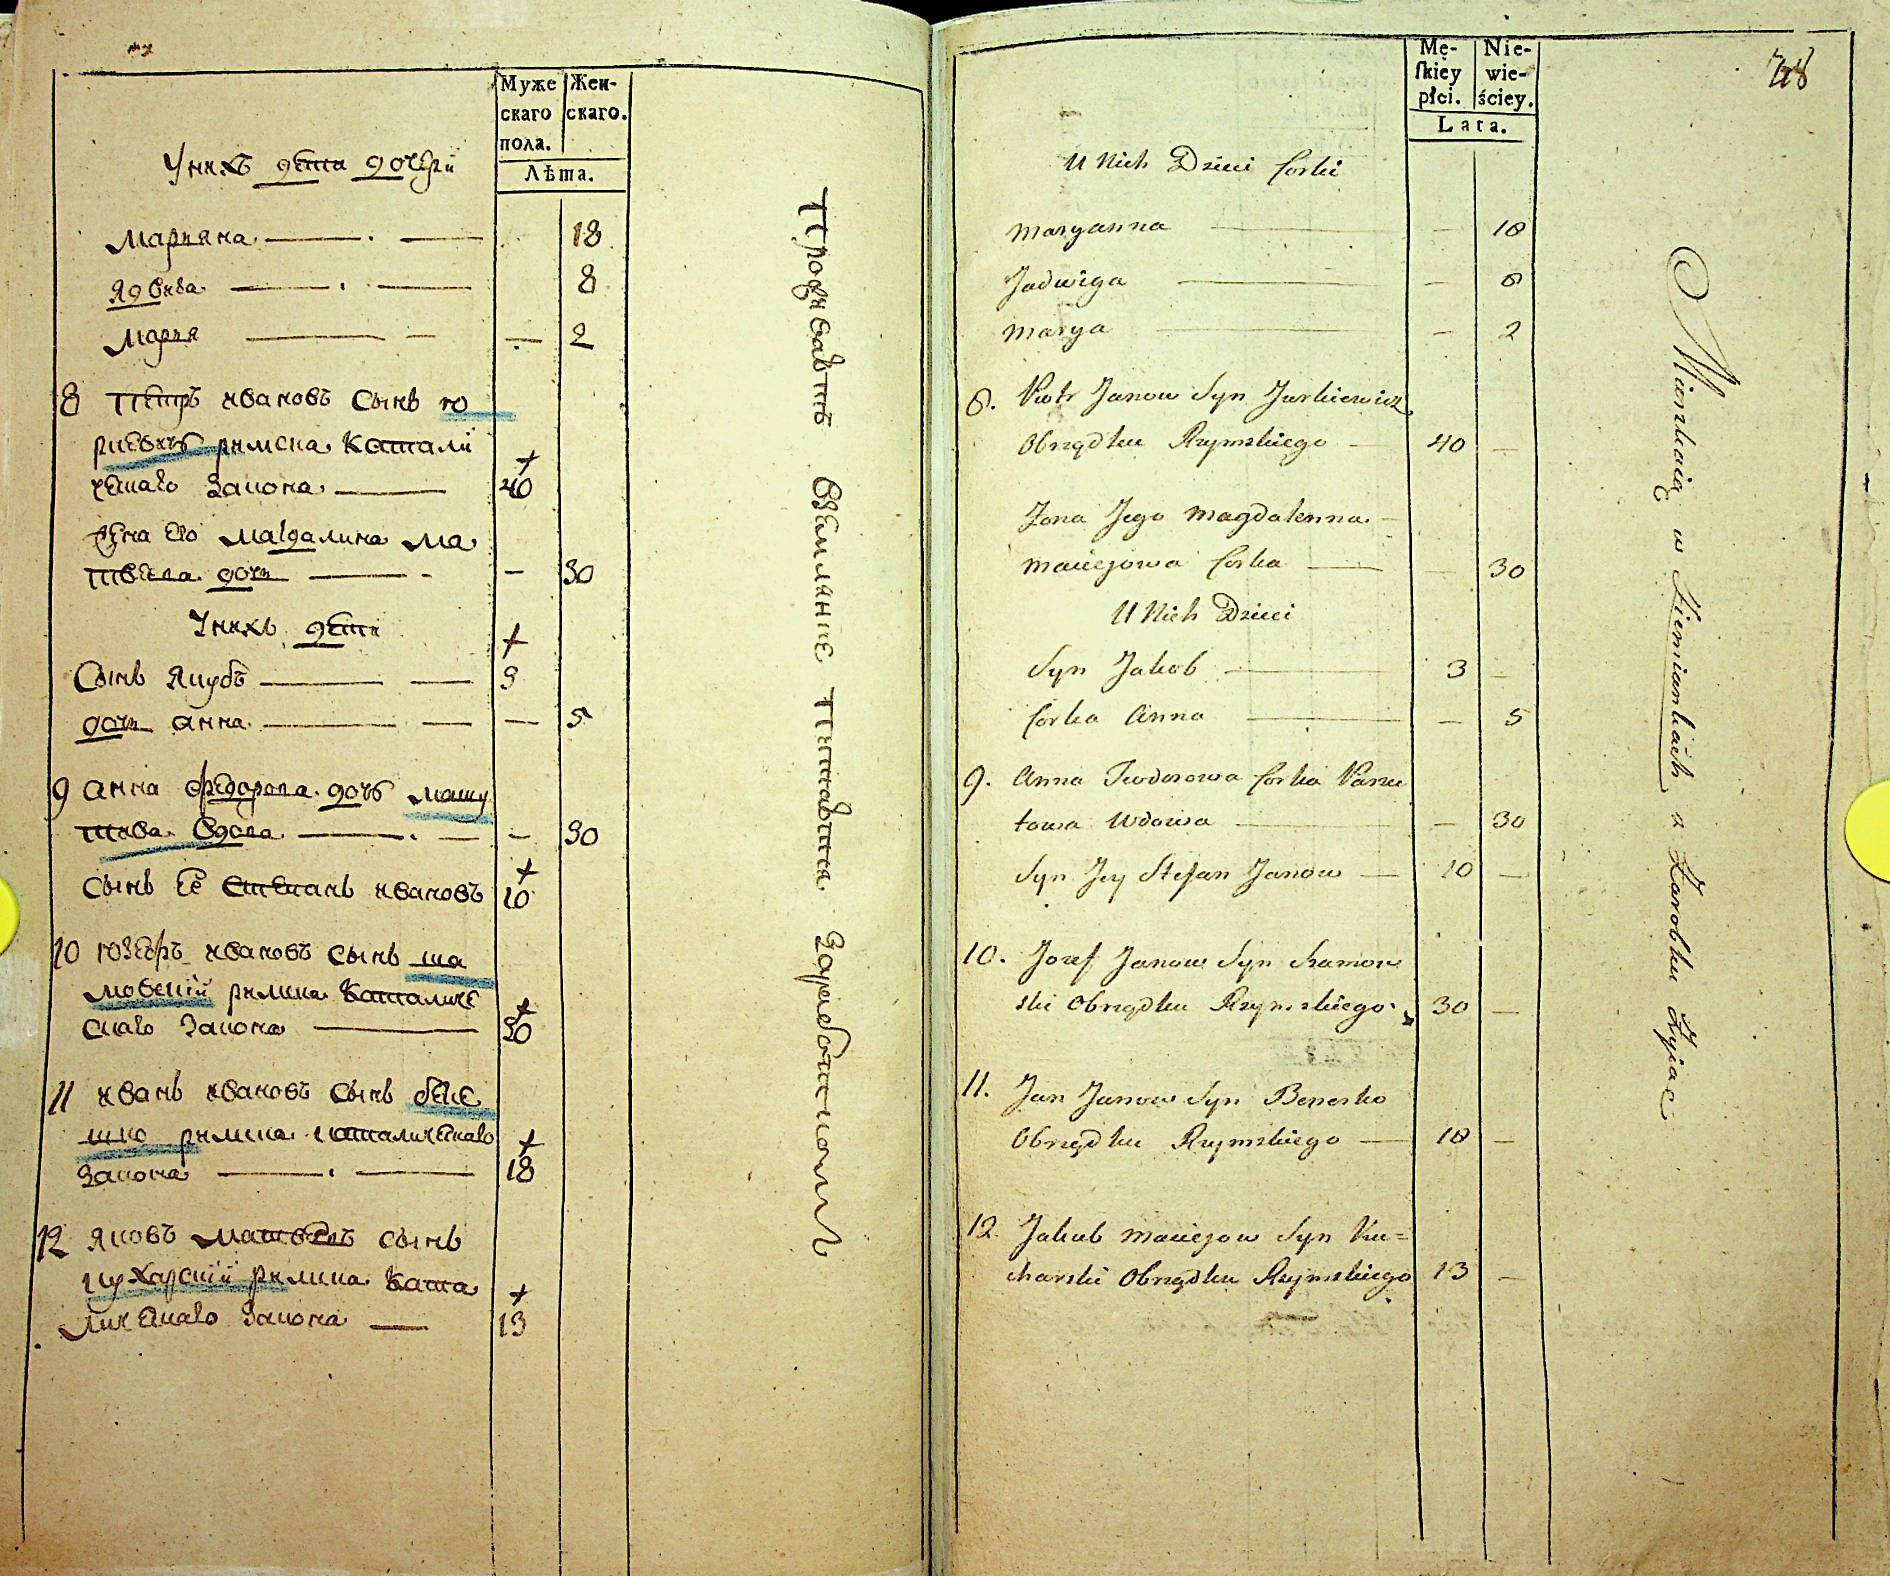 Муже
скаго
пола.
Жен-
скаго.
Лѣта.
Унихъ дети дочери
Марияна 18
Ядвига 8
Мария 2
8 Петръ Ивановъ Сынъ Ю
риевичъ римска Катали
ческаго Закона 40
Жена его Магдалина Ма
твеева дочь 30
Унихъ дети
Сынъ Якубъ 3
дочь Анна 5
9 Анна Федорова дочь
Вдова 30
Сынъ Её Степанъ Ивановъ 10
10 Юзефъ Ивановъ Сынъ Ша
мовский римска Каталиче
скаго Закона 30
11 Иванъ Ивановъ Сынъ Бене
шко римска Каталическаго
Закона 18
12 Яковъ Матвеевъ Сынъ
Кухарский римска Ката
лическаго Закона 13
Проживаютъ Вземлянке Питаются Зароботкомъ
48
Mę-
skiey
płci.
Nie-
wie-
ściey.
Lata.
U Nich Dzieci Corki
Maryanna 18
Jadwiga 8
Marya 2
8. Piotr Janow Syn Jurkiewicz
Obrządku Rzymskiego 40
Zona Jego Magdalenna
Maciejowa Corka 30
U Nich Dzieci
Syn Jakob 3
Corka Anna 5
9. Anna Teodorowa Corka
Wdowa 30
Syn Jey Stefan Janow 10
10. Jozef Janow Syn Szamow
ski Obrządku Rzymskiego 30
11. Jan Janow Syn Beneszko
Obrządku Rzymskiego 18
12. Jakub Maciejow Syn Ku=
charski Obrządku Rzymskiego 13
Mieszkaią w Ziemiankach z Zarobku Zyiąc